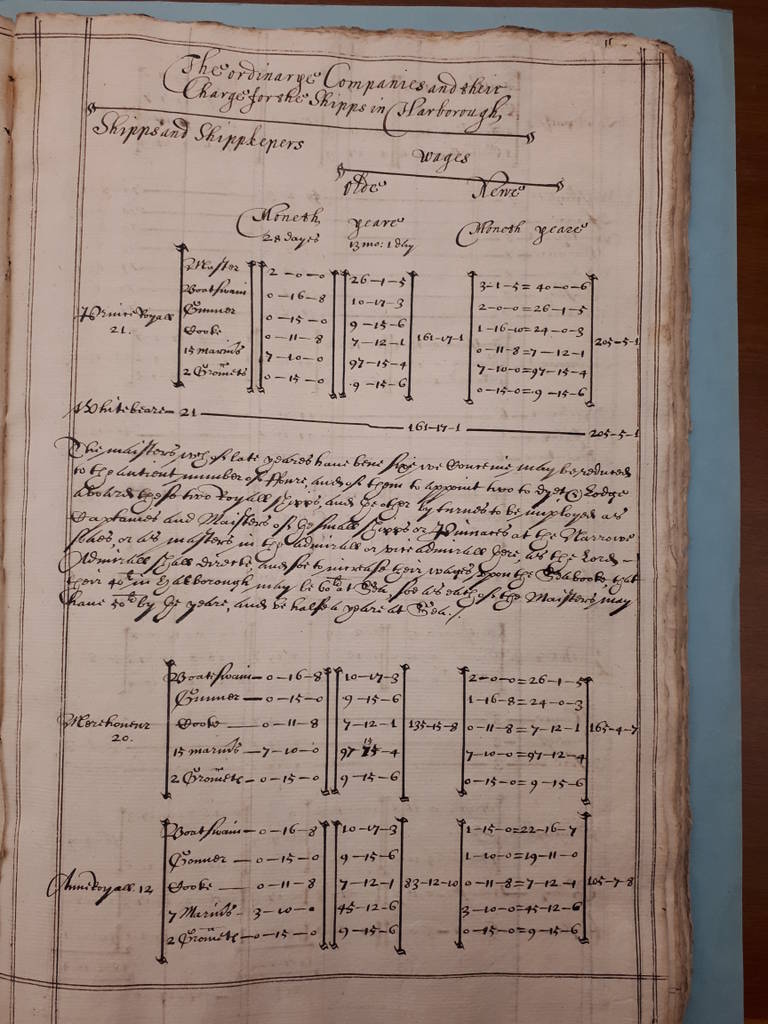 11
The ordinarye Companies and their
Charge for the Shipps in Harborough
Shipps and Shippkepers
wages
Olde Newe
Moneth yeare Moneth yeare
28 dayes 13 mo: 1 day
Master 2-0-0 26-1-5 3-1-5 = 40-0-6
Boatswain 0-16-8 10-17-3 2-0-0 = 26-1-5
Gunner 0-15-0 9-15-6 1-16-10 = 24-0-3
Prince Royall Cooke 0-11-8 7-12-1 161-17-1 0-11-8 = 7-12-1 205-5-1
21. 15 marinrs 7-10-0 97-15-4 7-10-0 = 97-15-4
2 Gromets 0-15-0 9-15-6 0-15-0 = 9-15-6
Whitebeare - 21 161-17-1 205-5-1
The maisters wch of late yeares have bene sixe we conceive may be reduced
to the antient number of ffoure, and of them to appoint two to dyet & Lodge
aboard these two Royall shipps, and the other by turnes to be imployed as
Captaines and Maisters of the small shipps or Pinnaces at the Narrowe
Seas or as masters in the admirall or vice admirall there, as the Lord -
Admirall shall directe, and soe to increase their wages upon the Seabooke that
their 40li in Harborough may be 60li at Sea, soe as each of the Maisters may
have 50li by the yeare, and be halfe a yeare at Sea ./.
Boatswain - 0-16-8 10-17-3 2-0-0 = 26-1-5
Gunner - 0-15-0 9-15-6 1-16-8 = 24-0-3
Merehoneur Cooke - 0-11-8 7-12-1 135-15-8 0-11-8 = 7-12-1 165-4-7
20. 15 marinrs - 7-10-0 97-15-4 7-10-0 = 97-12-4
2 Gromets - 0-15-0 9-15-6 0-15-0 = 9-15-6
Boatswain - 0-16-8 10-17-3 1-15-0 = 22-16-7
Gonner - 0-15-0 9-15-6 1-10-0 = 19-11-0
Anne Royall 12 Cooke - 0-11-8 7-12-1 83-12-10 0-11-8 = 7-12-1 105-7-8
7 Marinrs - 3-10-0 45-12-6 3-10-0 = 45-12-6
2 Gromets - 0-15-0 9-15-6 0-15-0 = 9-15-6